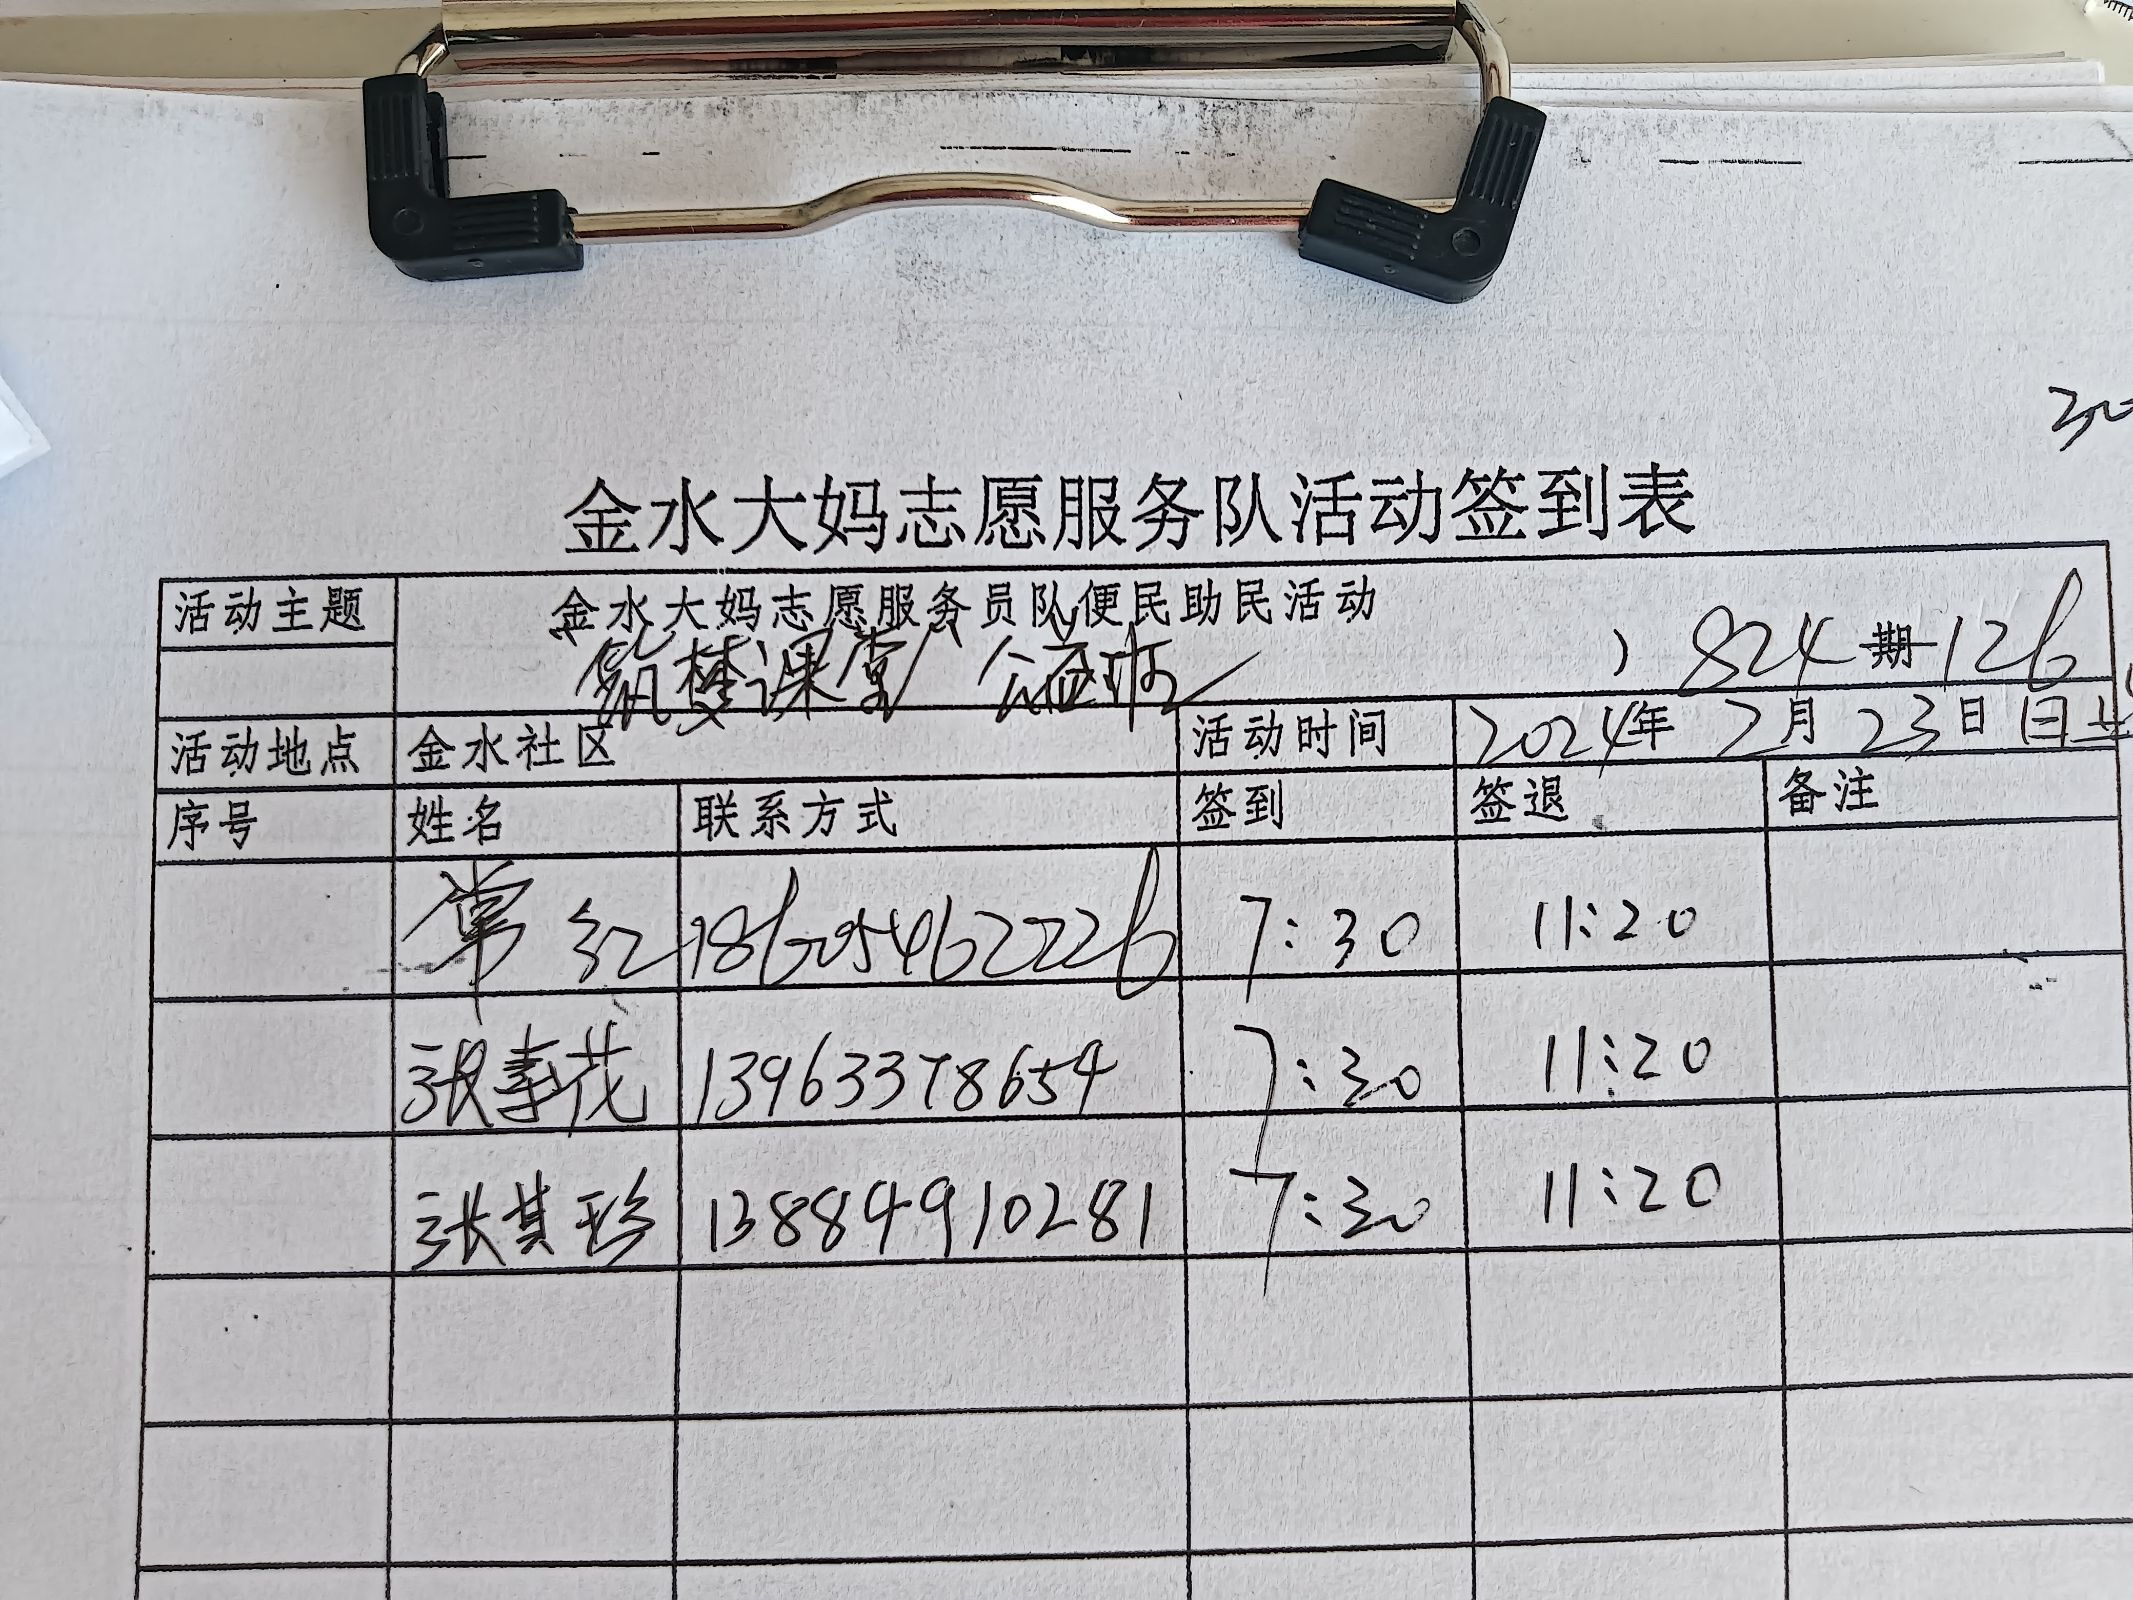 30
金水大妈志愿服务队活动签到表
活动主题 金水大妈志愿服务员队便民助民活动
筑梦课堂 ) 824期126
活动地点 金水社区 活动时间 2024年2月23日
序号 姓名 联系方式 签到 签退 备注
常红 18605462226 7:30 11:20
张春花 13963378654 7:30 11:20
张其珍 13884910281 7:30 11:20